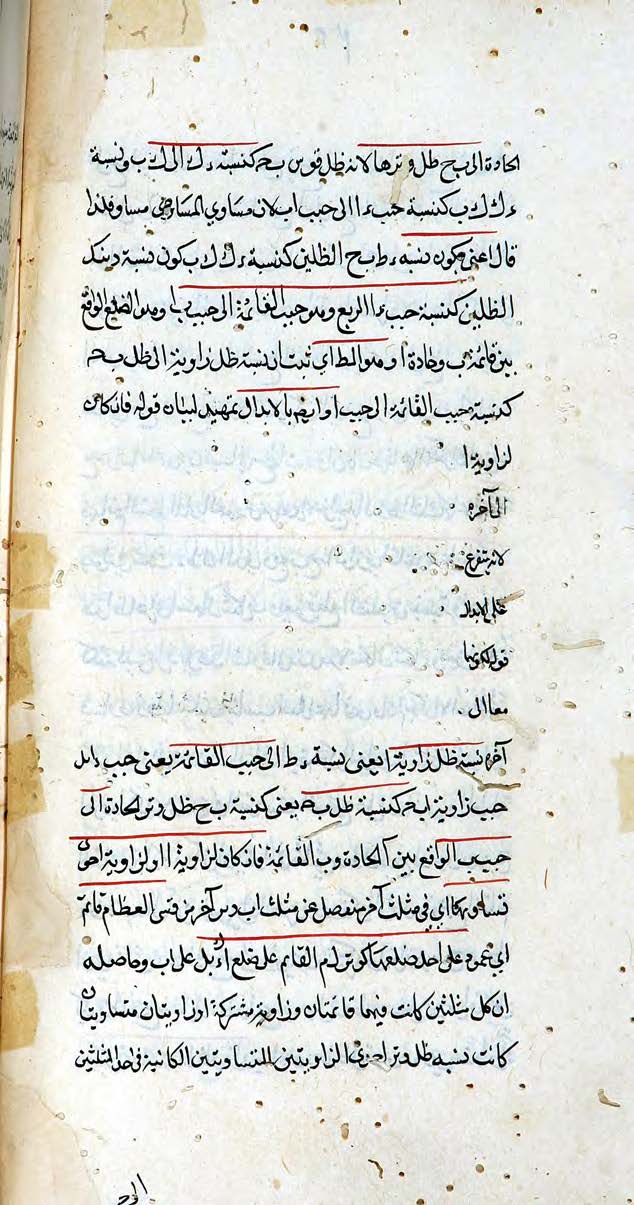 الحادة الى بح ظل وترها لانه ظل قوس بح كنسبة ءك الى ك ب ونسبة
ءك ك ب كنسبة جيب ءا الى جيب اب لان مساوي المساوي مساو فلذا
قال اعني يكون نسبة ءط بح الظلين كنسبة ءك ك ب كون نسبة دينك
الظلين كنسبة جيب ءا الربع وهو جيب القائمة الى جيب ب ا وهو الضلع الواقع
بين قائمة ب وحادة ا وهو المط اي ثبت ان نسبة ظل زاوية ا الى ظل بح
كنسبة جيب القائمة الى جيب ا ب بالابدال تمهيد لبيان قوله فان كان
لزاوية ا
الى آخره
لانه يتفرع
على الابدال
قوله لكونها
معا ال
آخره نسبة ظل زاوية ا يعني نسبة ءط الى جيب القائمة يعني جيب ءا
جيب زاوية ابح كنسبة ظل بح يعني كنسبة بح ظل وتر الحادة الى
جيب ب ا الواقع بين ا الحادة وب القائمة فان كان لزاوية ا او لزاوية اخرى
تساويها اي في مثلث آخر منفصل عن مثلث اب آخر من قسي العظام قائم
اي عمود على احد ضلعيها القائم على ضلع اء بل على اب وحاصله
ان كل مثلثين كانت فيهما قائمتان وزاوية مشتركة او زاويتان متساويتان
كانت نسبة ظل وتر احدى الزاويتين المتساويتين الكائنة في احد المثلثين